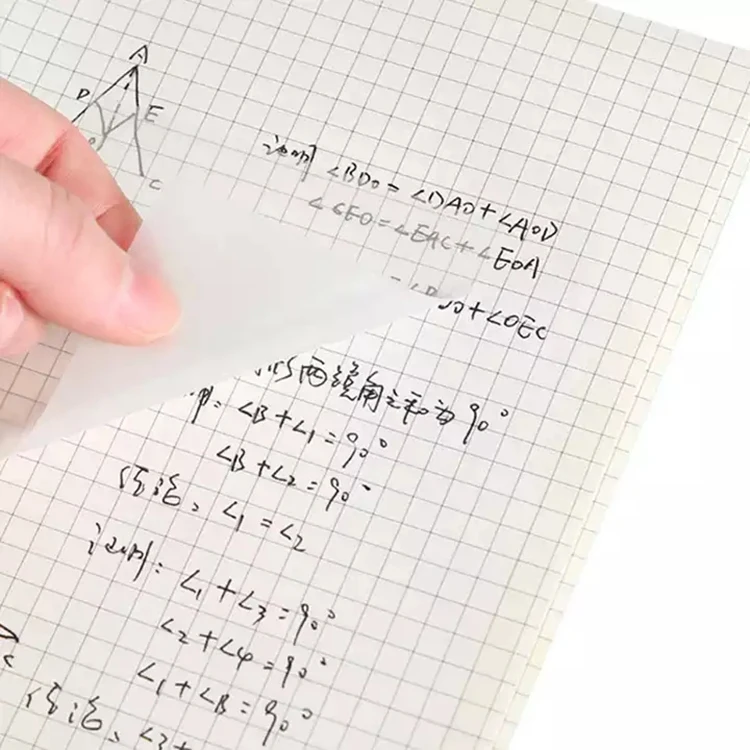 A
D
E
C
证明 ∠BDO = ∠DAO + ∠AOD
∠CEO = ∠EAC + ∠EOA
+ ∠OEC
两锐角之和为90°
∠B + ∠1 = 90°
∠B + ∠2 = 90°
结论: ∠1 = ∠2
证明: ∠1 + ∠3 = 90°
∠2 + ∠4 = 90°
C
∠1 + ∠B = 90°
结论: ∠3 +